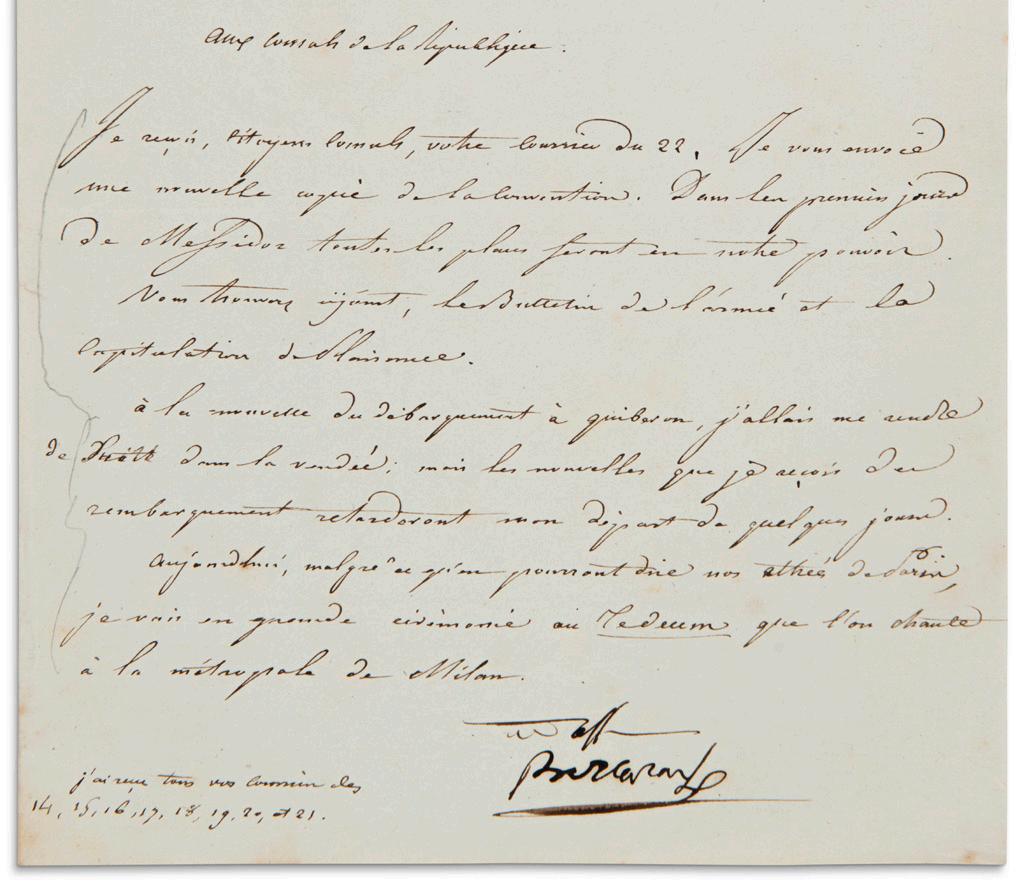 aux Consuls de la République.
Je reçois, citoyens Consuls, votre courrier du 22. Je vous envoie
une nouvelle copie de la Convention. Dans les premiers jours
de Messidor toutes les places seront en notre pouvoir.
Vous trouverez cijoint, le Bulletin de l'armée et la
Capitulation de Plaisance.
à la nouvelle du débarquement à quiberon, j'allais me rendre
de dans la vendée; mais les nouvelles que je reçois du
rembarquement retarderont mon départ de quelques jours.
Aujourdhui, malgré ce qu'en pourront dire nos athées de Paris,
je vais en grande cérémonie au Tedeum que l'on chante
à la métropole de Milan.
Bonaparte
j'ai reçu tous vos courriers des
14, 15, 16, 17, 18, 19, 20, et 21.